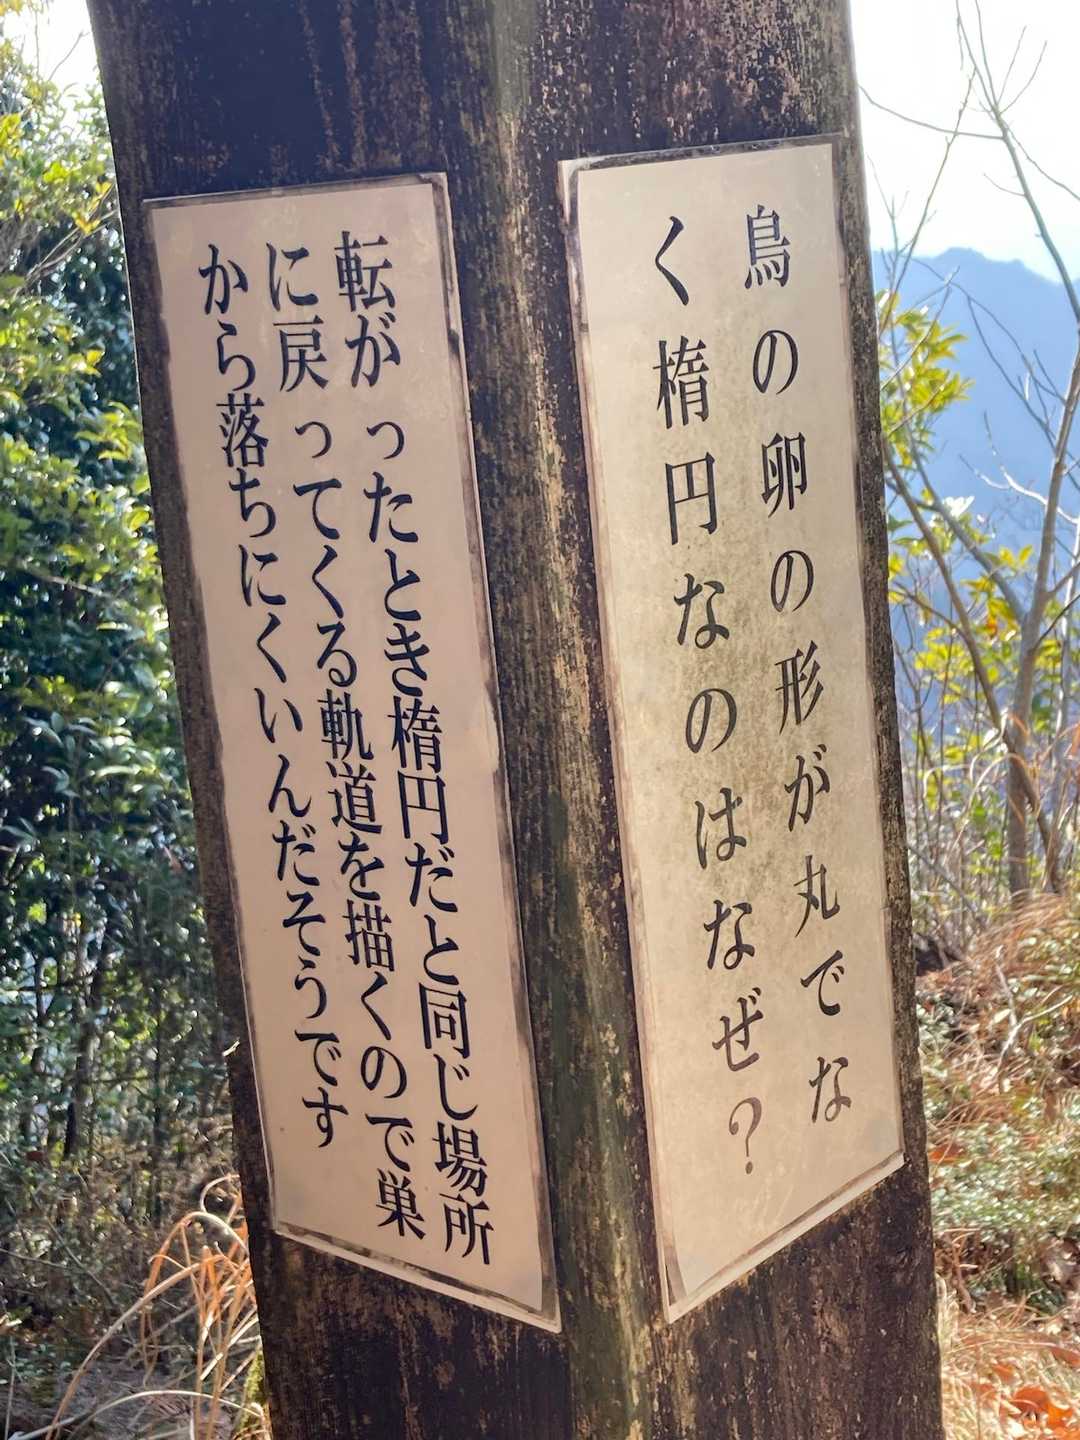 鳥の卵の形が丸でな
く楕円なのはなぜ？
転がったとき楕円だと同じ場所
に戻ってくる軌道を描くので巣
から落ちにくいんだそうです